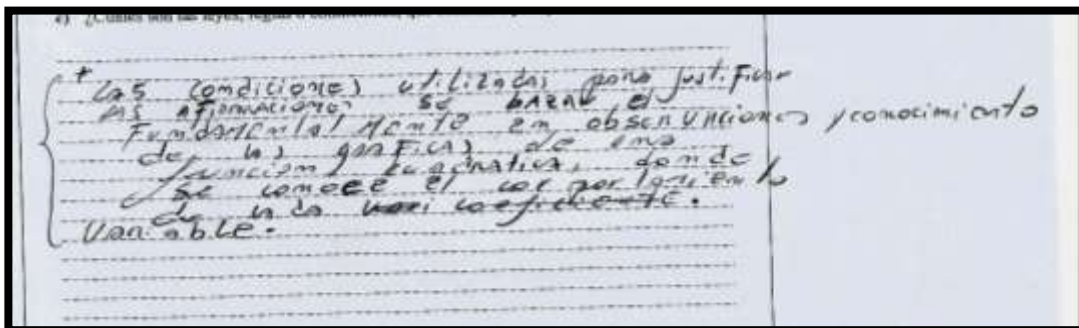 e) ¿Cuáles son las leyes, reglas o
* Las condiciones utilizadas para justificar
las afirmaciones se bazan el
Fundamentalmente en observaciones y conocimiento
de las graficas de una
funcion cuadratica, donde
se conoce el comportamiento
de cada vari coeficiente.
Variable.